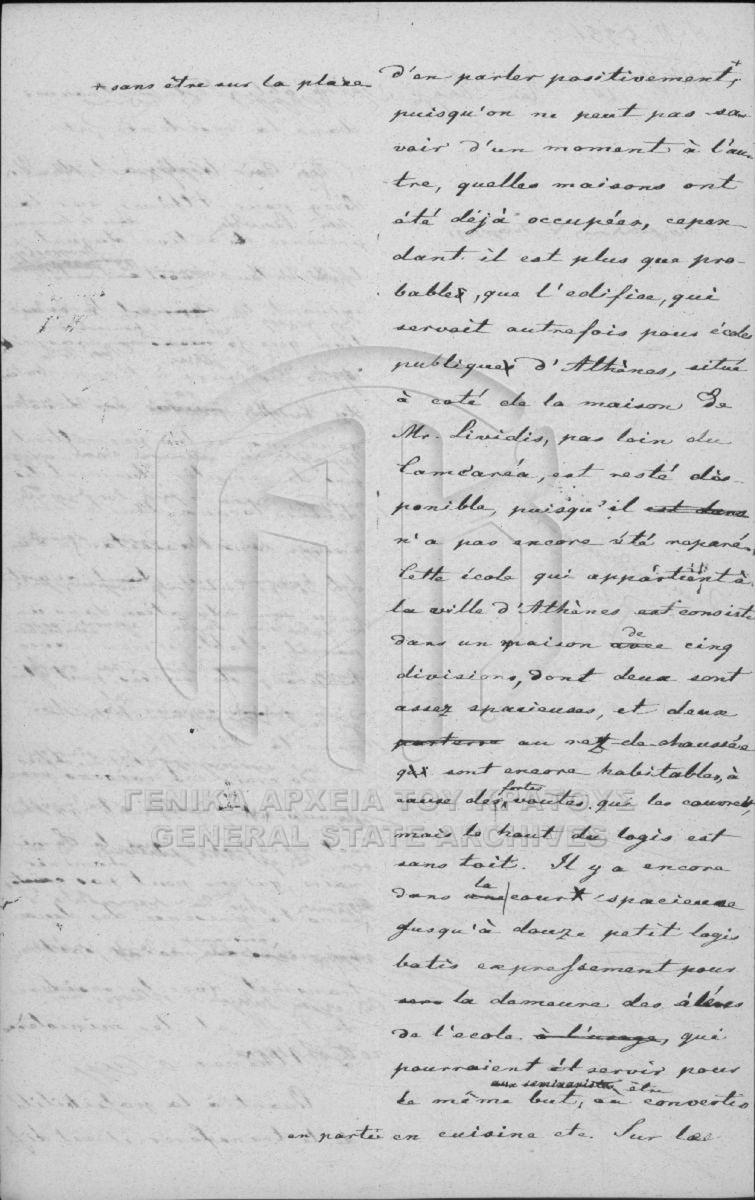 + sans être sur la place
d'en parler positivement, +
puisqu'on ne peut pas sa-
voir d'un moment à l'au-
tre, quelles maisons ont
été déjà occupées, cepen
dant il est plus que pro-
bable, que l'edifice, qui
servoit autrefois pour écoles
publique d'Athènes, situé
à coté de la maison de
Mr. Lividis, pas loin du
Camcaréa, est resté dis-
ponible, puisqu'il est dans
n'a pas encore été reparé.
Cette école qui appartient à
la ville d'Athènes est consiste
dans un maison avec de cinq
divisions, dont deux sont
assez spacieuses, et deux
parterre au rez de chaussée
qui sont encore habitables, à
cause des fortes voutes qui les couvrent,
mais le haut du logis est
sans toit. Il y a encore
dans une la cour spacieuse
Jusqu'à douze petit logis
batis expressement pour
la demeure des élèves
de l'ecole à l'usage, qui
pourraient servir pour
aux seminaristes être
le même but, convertis
en partie en cuisine etc. Sur
ΓΕΝΙΚΑ ΑΡΧΕΙΑ ΤΟΥ ΚΡΑΤΟΥΣ
GENERAL STATE ARCHIVES